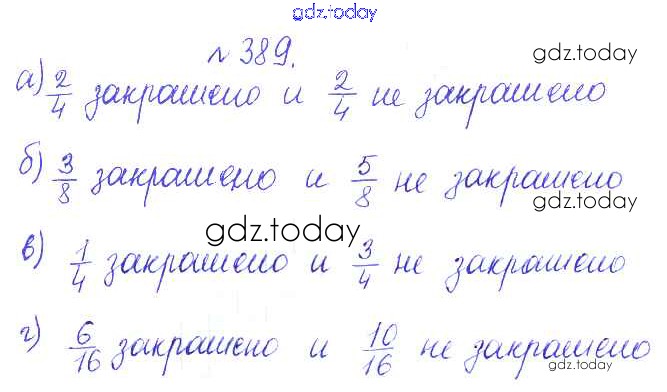 gdz.today
№ 389.
gdz.today
а) 2/4 закрашено и 2/4 не закрашено
б) 3/8 закрашено и 5/8 не закрашено
gdz.today
gdz.today
в) 1/4 закрашено и 3/4 не закрашено
г) 6/16 закрашено и 10/16 не закрашено
gdz.today